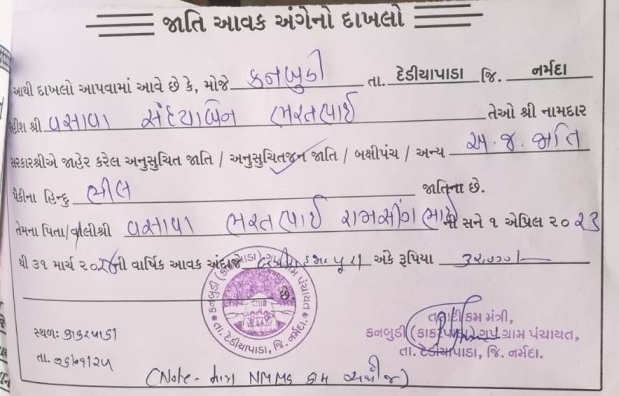 જાતિ આવક અંગેનો દાખલો
આથી દાખલો આપવામાં આવે છે કે, મોજે કનબુડી તા. દેડીયાપાડા જિ. નર્મદા
રહીશ શ્રી વસાવા સંધ્યાબેન ભરતભાઈ તેઓ શ્રી નામદાર
સરકારશ્રીએ જાહેર કરેલ અનુસુચિત જાતિ / અનુસુચિતજન જાતિ / બક્ષીપંચ / અન્ય અ.જ.જાતિ
પૈકીના હિન્દુ ભીલ જાતિના છે.
તેમના પિતા/વાલીશ્રી વસાવા ભરતભાઈ રામસીંગભાઈ ની સને ૧ એપ્રિલ ૨૦૨૩
થી ૩૧ માર્ચ ૨૦૨૪ની વાર્ષિક આવક અંદાજે હજાર પૂરા અંકે રૂપિયા
સ્થળ: કાકરપાડા
તા.
કનબુડી (કાકરપાડા) ગૃપ ગ્રામ પંચાયત
તા. દેડીયાપાડા, જિ. નર્મદા.
તલાટી કમ મંત્રી,
કનબુડી (કાકરપાડા) ગૃપ ગ્રામ પંચાયત,
તા. દેડીયાપાડા, જિ. નર્મદા.
(Note - માત્ર NMMS ફોર્મ માટે જ)